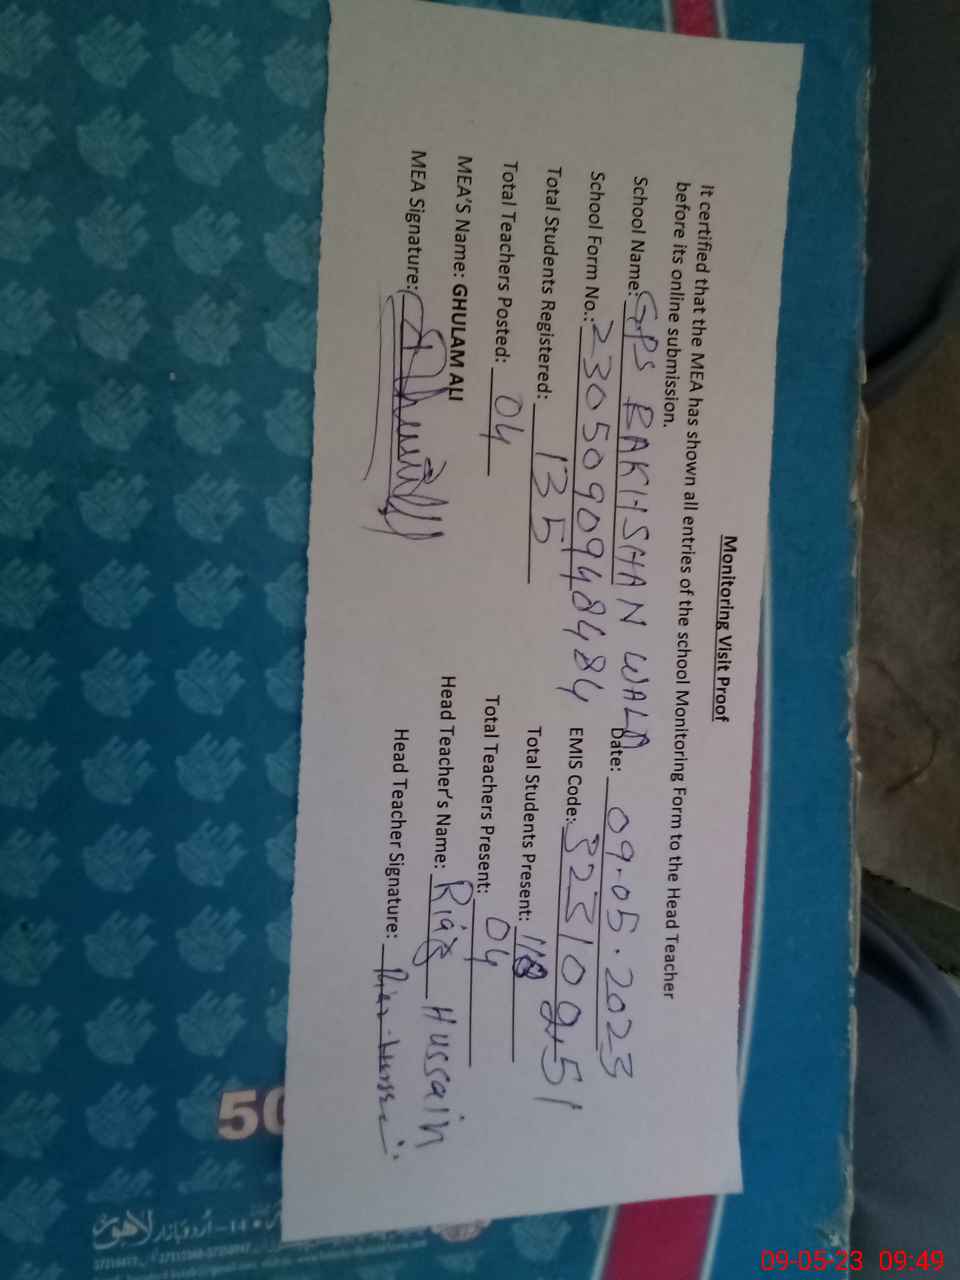 Monitoring Visit Proof
It certified that the MEA has shown all entries of the school Monitoring Form to the Head Teacher
before its online submission.
School Name: GPS BAKHSHAN WALA Date: 09.05.2023
School Form No.: 2305090948484 EMIS Code: 32310951
Total Students Registered: 135 Total Students Present: 118
Total Teachers Posted: 04 Total Teachers Present: 04
MEA'S Name: GHULAM ALI Head Teacher's Name: Riaz Hussain
MEA Signature: Head Teacher Signature:
50
لاہور
09-05-23 09:49